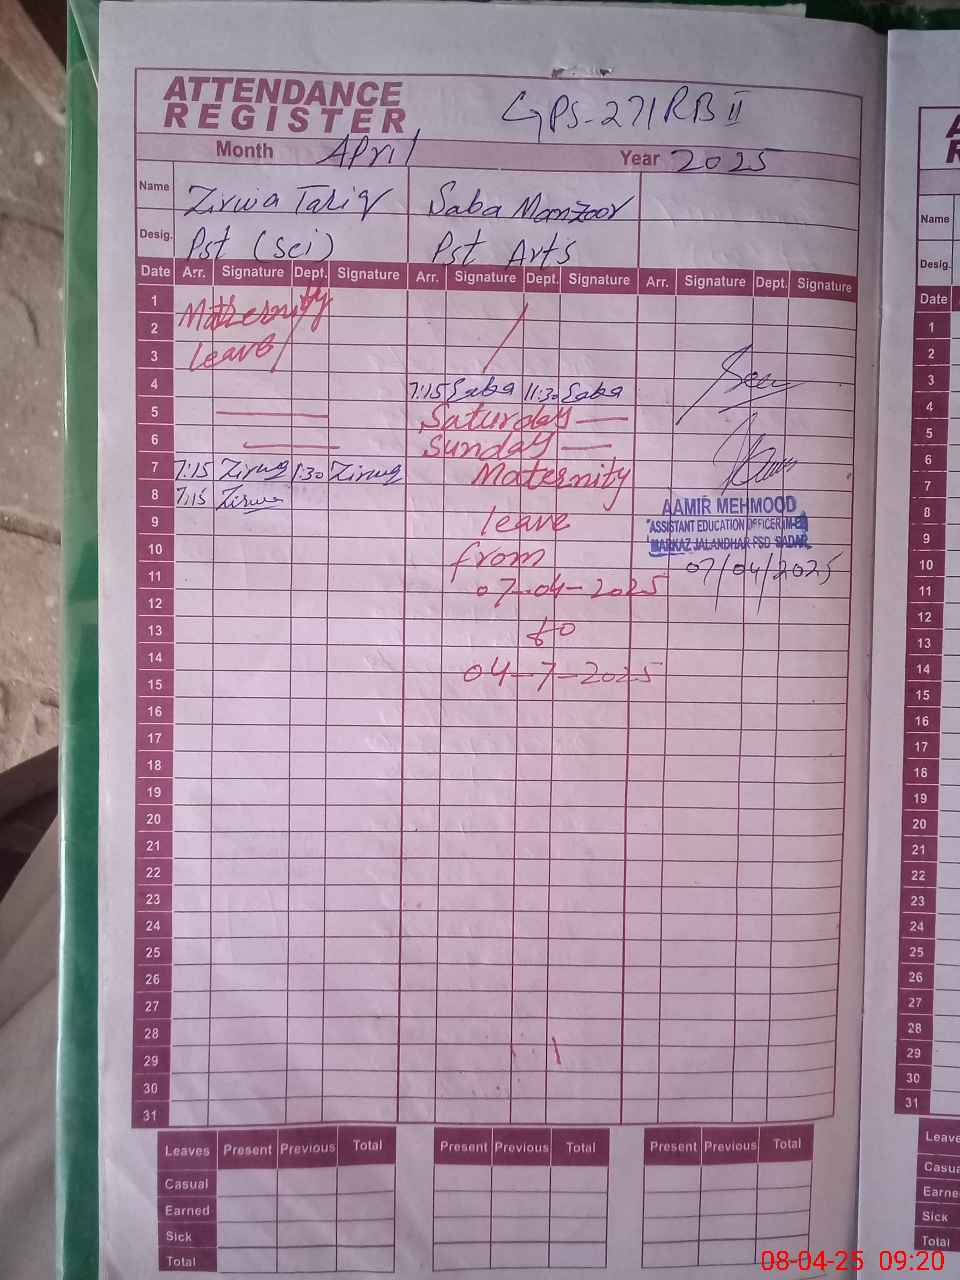 ATTENDANCE REGISTER
GPS-271RB II
Month April Year 2025
Name Zirwa Tariq Saba Manzoor
Desig. Pst (Sci) Pst Arts
Date Arr. Signature Dept. Signature Arr. Signature Dept. Signature Arr. Signature Dept. Signature
1 Maternity
2
3 leave
4 7:15 Saba 11:30 Saba
5 Saturday
6 Sunday
7 7:15 Zirwa 1:30 Zirwa Maternity
8 7:15 Zirwa
AAMIR MEHMOOD
9 leave
ASSISTANT EDUCATION OFFICER
MARKAZ JALANDHAR FSD SADAR
10 from 07/04/2025
11 07-04-2025
12
13 to
14 04-7-2025
15
16
17
18
19
20
21
22
23
24
25
26
27
28
29
30
31
Leaves Present Previous Total Present Previous Total Present Previous Total
Casual
Earned
Sick
Total
Name
Desig.
Date
1
2
3
4
5
6
7
8
9
10
11
12
13
14
15
16
17
18
19
20
21
22
23
24
25
26
27
28
29
30
31
Leave
Casua
Earne
Sick
Total
08-04-25 09:20